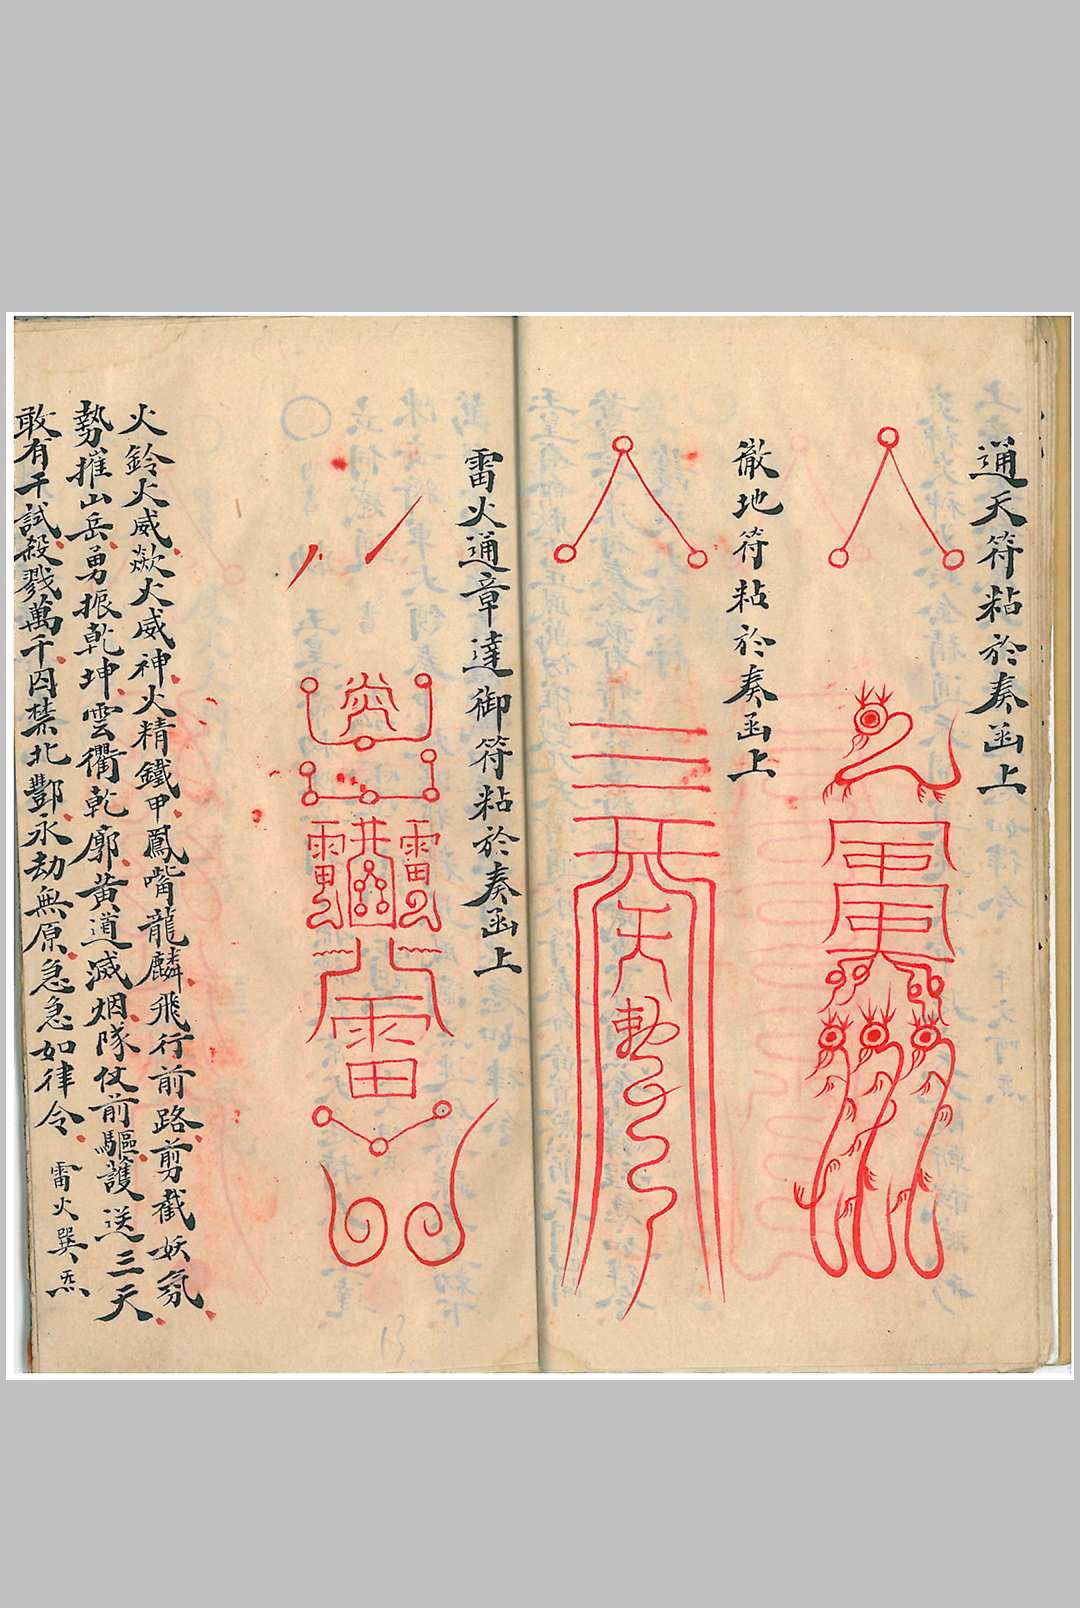 通天符粘於奏函上
徹地符粘於奏函上
雷火通章達御符粘於奏函上
火鈴火威歘火威神火精鐵甲鳳嘴龍麟飛行前路剪截妖氛
勢摧山岳勇振乾坤雲衢乾廓黃道滅烟隊仗前驅護送三天
敢有干試殺戮萬千囚禁北酆永劫無原急急如律令 雷火巽炁